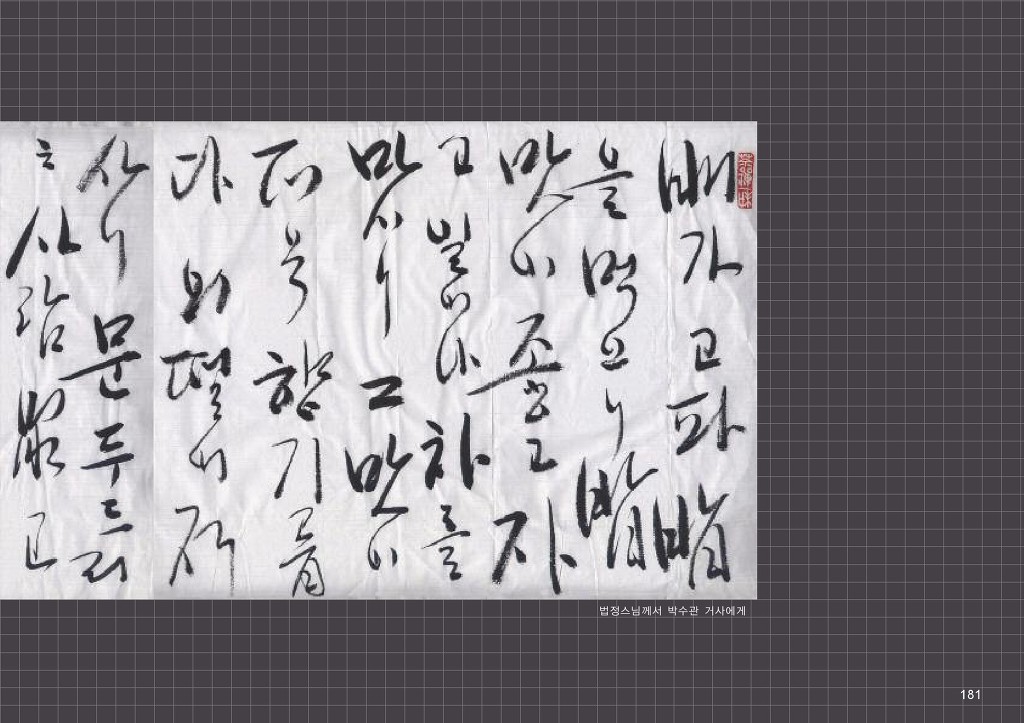 배가 고파 밥
을 먹으니 밥
맛이 좋고 자
고 일어나 차를
마시니 그 맛이
더욱 향기롭
다 외떨어져
사니 문 두드리
는 사람 없고
법정스님께서 박수관 거사에게
181